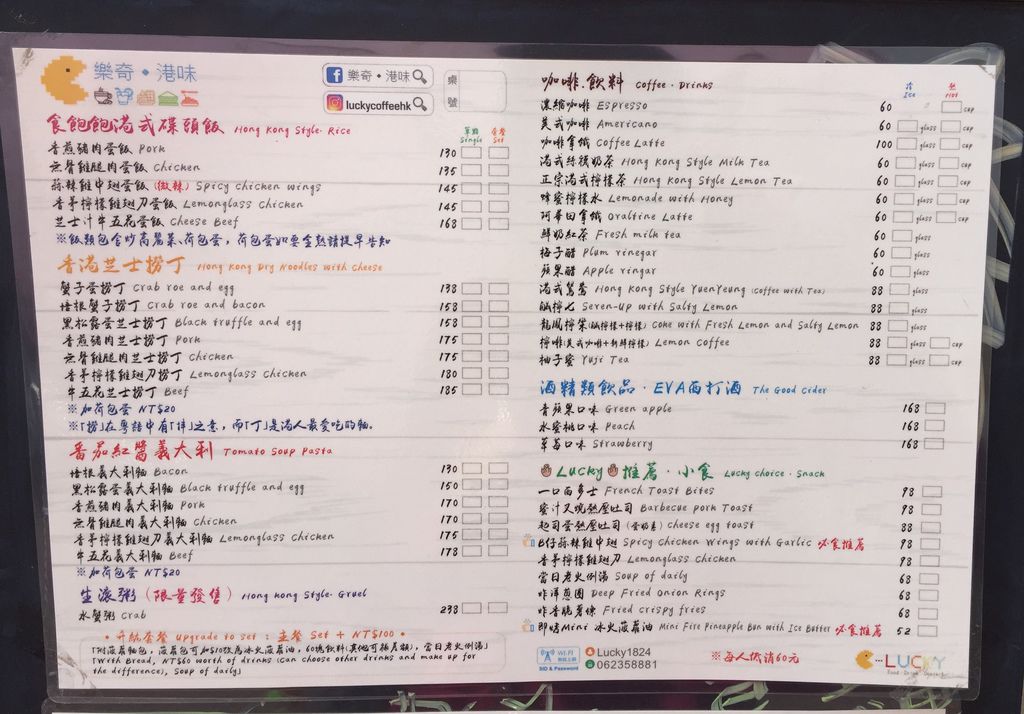 樂奇・港味
樂奇・港味
luckycoffeehk
桌號
食飽飽港式碟頭飯 Hong Kong Style. Rice
單點 Single 套餐 Set
香煎豬肉蛋飯 Pork 130
無骨雞腿肉蛋飯 Chicken 135
蒜辣雞中翅蛋飯(微辣) Spicy chicken wings 145
香茅檸檬雞翅刀蛋飯 Lemonglass Chicken 145
芝士汁牛五花蛋飯 Cheese Beef 168
※飯類包含炒高麗菜、荷包蛋，荷包蛋如要全熟請提早告知
香港芝士撈丁 Hong Kong Dry Noodles with cheese
蟹子蛋撈丁 Crab roe and egg 138
培根蟹子撈丁 Crab roe and bacon 158
黑松露蛋芝士撈丁 Black truffle and egg 158
香煎豬肉芝士撈丁 Pork 175
無骨雞腿肉芝士撈丁 Chicken 175
香茅檸檬雞翅刀撈丁 Lemonglass Chicken 180
牛五花芝士撈丁 Beef 185
※加荷包蛋 NT$20
※「撈」在粵語中有「拌」之意，而「丁」是港人最愛吃的麵。
番茄紅醬義大利 Tomato Soup Pasta
培根義大利麵 Bacon 130
黑松露蛋義大利麵 Black truffle and egg 150
香煎豬肉義大利麵 Pork 170
無骨雞腿肉義大利麵 Chicken 170
香茅檸檬雞翅刀義大利麵 Lemonglass Chicken 175
牛五花義大利麵 Beef 178
※加荷包蛋 NT$20
生滾粥(限量發售) Hong Kong Style. Gruel
水蟹粥 Crab 238
• 升級套餐 Upgrade to set : 主餐 Set + NT$100 •
「附菠蘿麵包，菠蘿包可加$10改為冰火菠蘿油，60塊飲料(其他可補差額)，當日老火例湯」
「With Bread, NT$60 worth of drinks (can choose other drinks and make up for
the difference), Soup of daily」
咖啡.飲料 Coffee . Drinks
冷 Ice 熱 Hot
濃縮咖啡 Espresso 60 cup
美式咖啡 Americano 60 glass cup
咖啡拿鐵 Coffee Latte 100 glass cup
港式絲襪奶茶 Hong Kong Style Milk Tea 60 glass cup
正宗港式檸檬茶 Hong Kong Style Lemon Tea 60 glass cup
蜂蜜檸檬水 Lemonade with Honey 60 glass cup
阿華田拿鐵 Ovaltine Latte 60 glass cup
鮮奶紅茶 Fresh milk tea 60 glass
梅子醋 Plum vinegar 60 glass
蘋果醋 Apple vingar 60 glass
港式鴛鴦 Hong Kong Style YuenYeung (Coffee with Tea) 88 glass cup
鹹檸七 Seven-Up with Salty Lemon 88 glass
龍鳳檸樂(鹹檸檬+檸檬) Coke with Fresh Lemon and Salty Lemon 88 glass
檸啡(美式咖啡+新鮮檸檬) Lemon Coffee 88 glass cup
柚子蜜 Yuji Tea 88 glass cup
酒精類飲品 . EVA西打酒 The Good Cider
青蘋果口味 Green apple 168
水蜜桃口味 Peach 168
草莓口味 Strawberry 168
Lucky推薦 . 小食 Lucky choice . Snack
一口西多士 French Toast Bites 98
蜜汁叉燒熱壓吐司 Barbecue pork Toast 98
起司蛋熱壓吐司(蛋奶素) cheese egg toast 88
B仔蒜辣雞中翅 Spicy Chicken Wings with Garlic 必食推薦 98
香茅檸檬雞翅刀 Lemonglass Chicken 98
當日老火例湯 Soup of daily 68
咋洋蔥圈 Deep Fried Onion Rings 68
咋香脆薯條 Fried crispy fries 68
即烤Mini 冰火菠蘿油 Mini Fire Pineapple Bun with Ice Butter 必食推薦 52
WI-FI
無線上網
SID & Password
Lucky1824
062358881
※每人低消60元
LUCKY